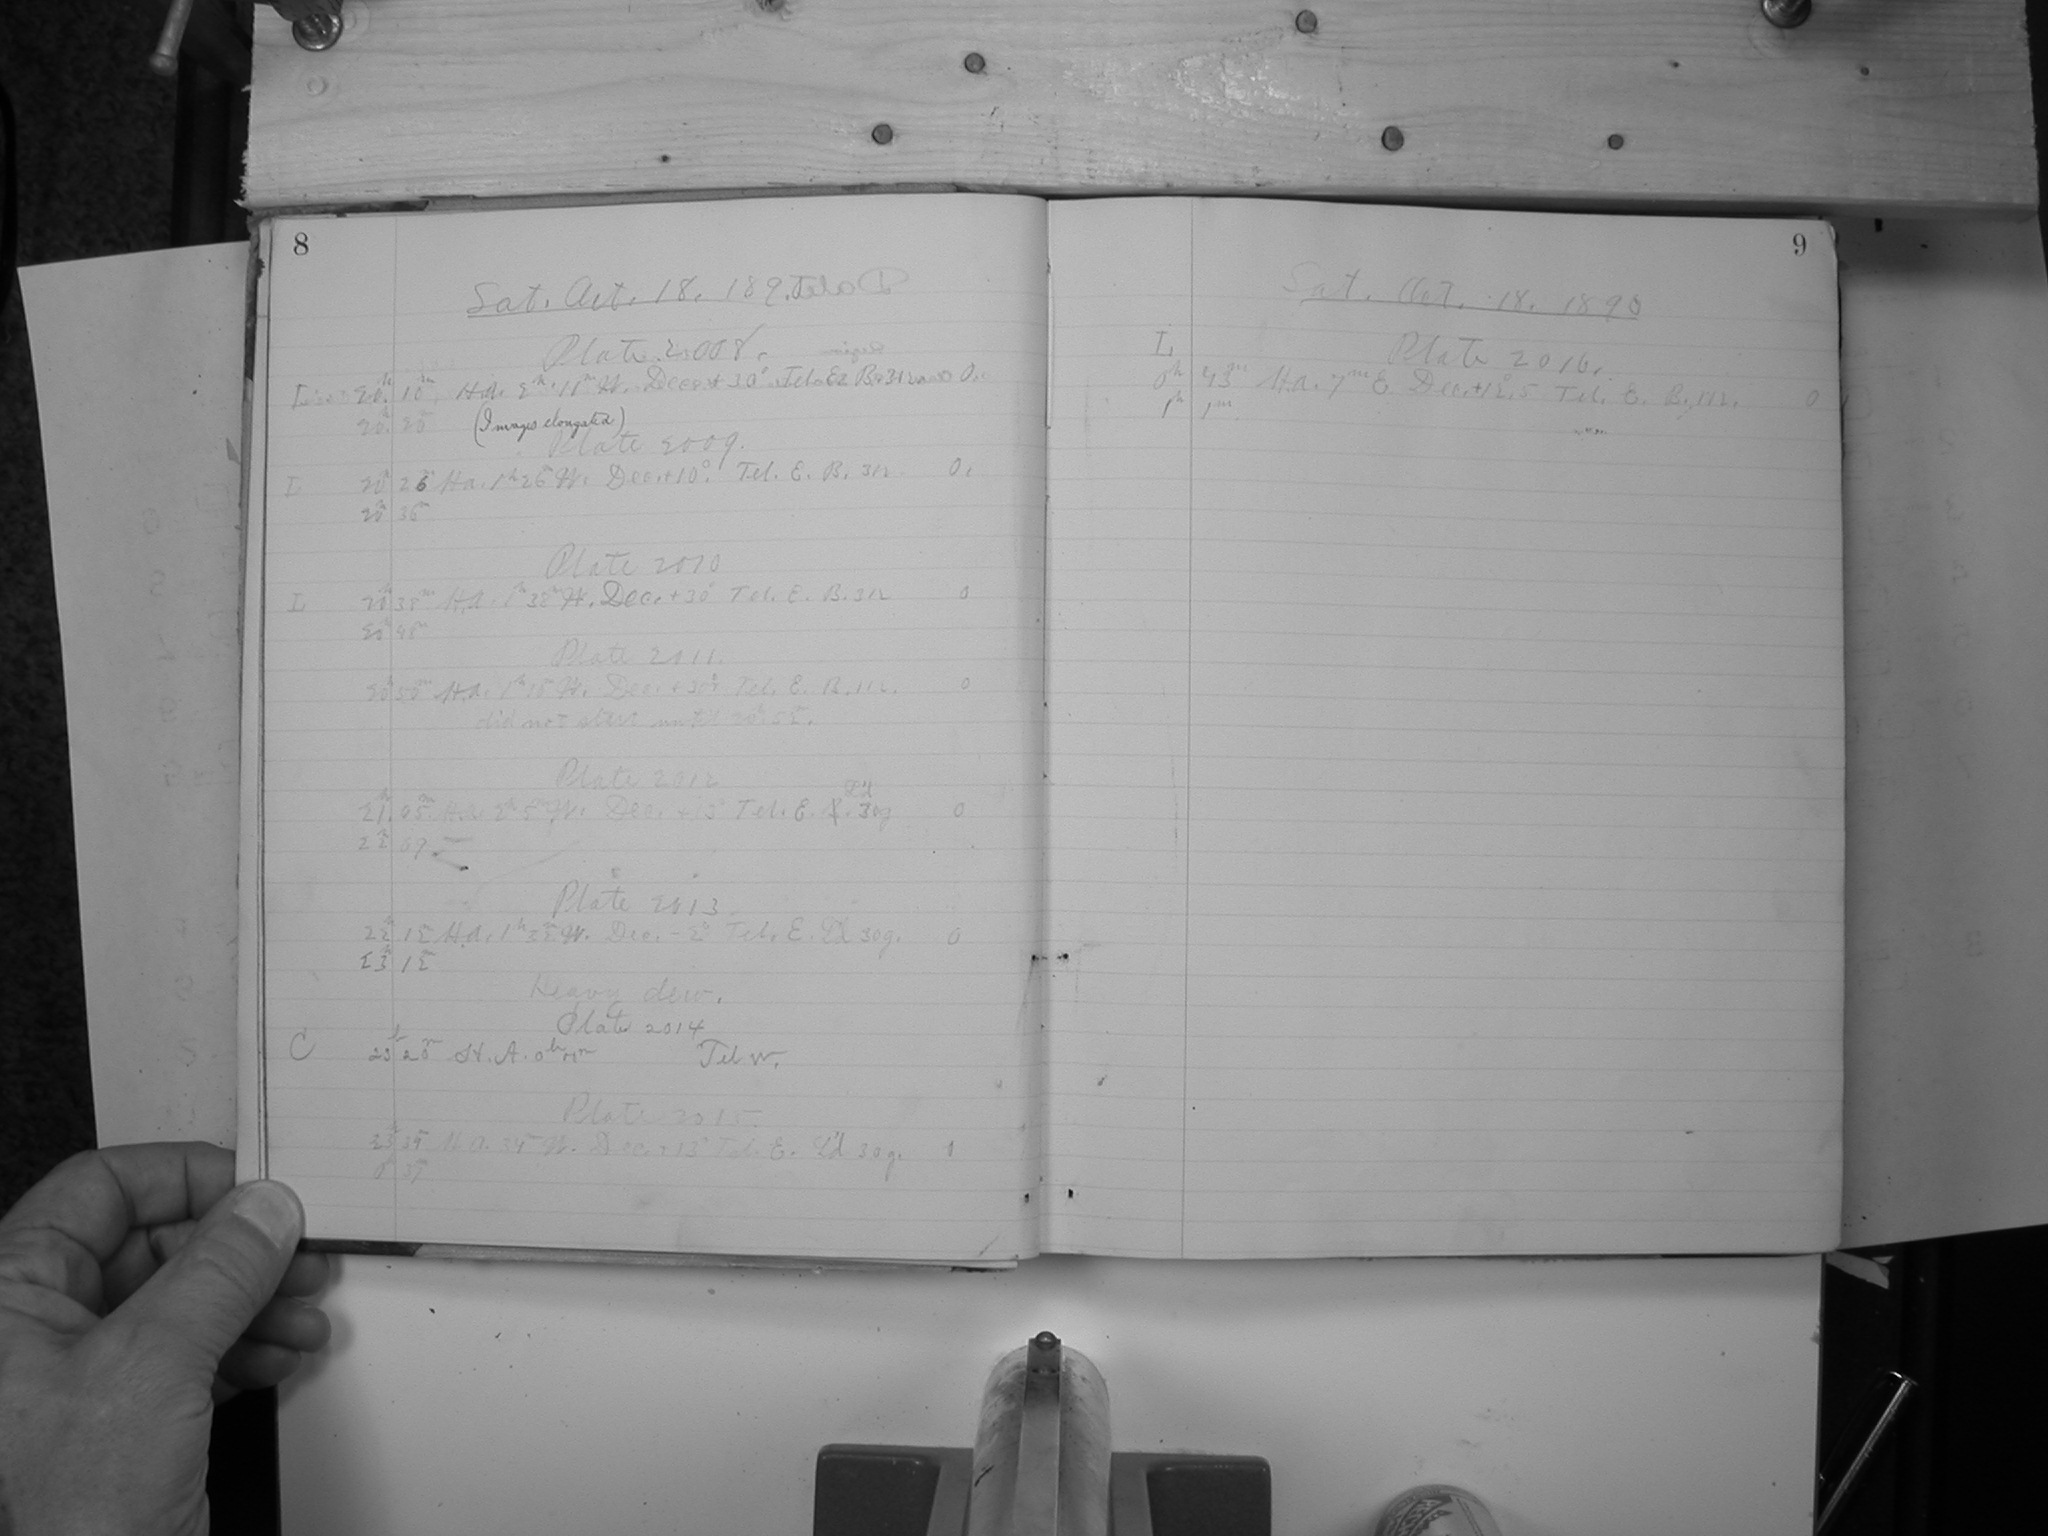 8
Sat. Oct. 18. 189
Plate 2008.
20h 10m H.a. 2h 11m W. Dec. + 30° Tel. E. B. 312 0.
20h 20m (Images elongated)
Plate 2009.
L 20h 26m H.a. 1h 26m W. Dec. +10°. Tel. E. B. 312 0.
20h 36m
Plate 2010
L 20h 38m H.a. 1h 38m W. Dec. +30° Tel. E. B. 312 0
20h 48m
Plate 2011.
20h 50m H.a. 1h 15m W. Dec. +30° Tel. E. B. 112. 0
did not start until 20h 52m.
Plate 2012
21h 05m H.a. 2h 5m W. Dec. +13° Tel. E. L'd 30g 0
22h 09
Plate 2013
22h 12m H.a. 1h 32m W. Dec. - 2° Tel. E. L'd 30g. 0
23h 12m
Heavy dew.
Plate 2014
C 23h 20m H.A. 0h Tel W.
Plate 2015
23h 35m H.a. W. Dec. +13° Tel. E. L'd 30g. 0
0h 37m
9
Sat. Oct. 18. 1890
L
Plate 2016.
0h 43m H.a. 7m E Dec. +12.°5 Tel. E. B. 112. 0
1h 1m